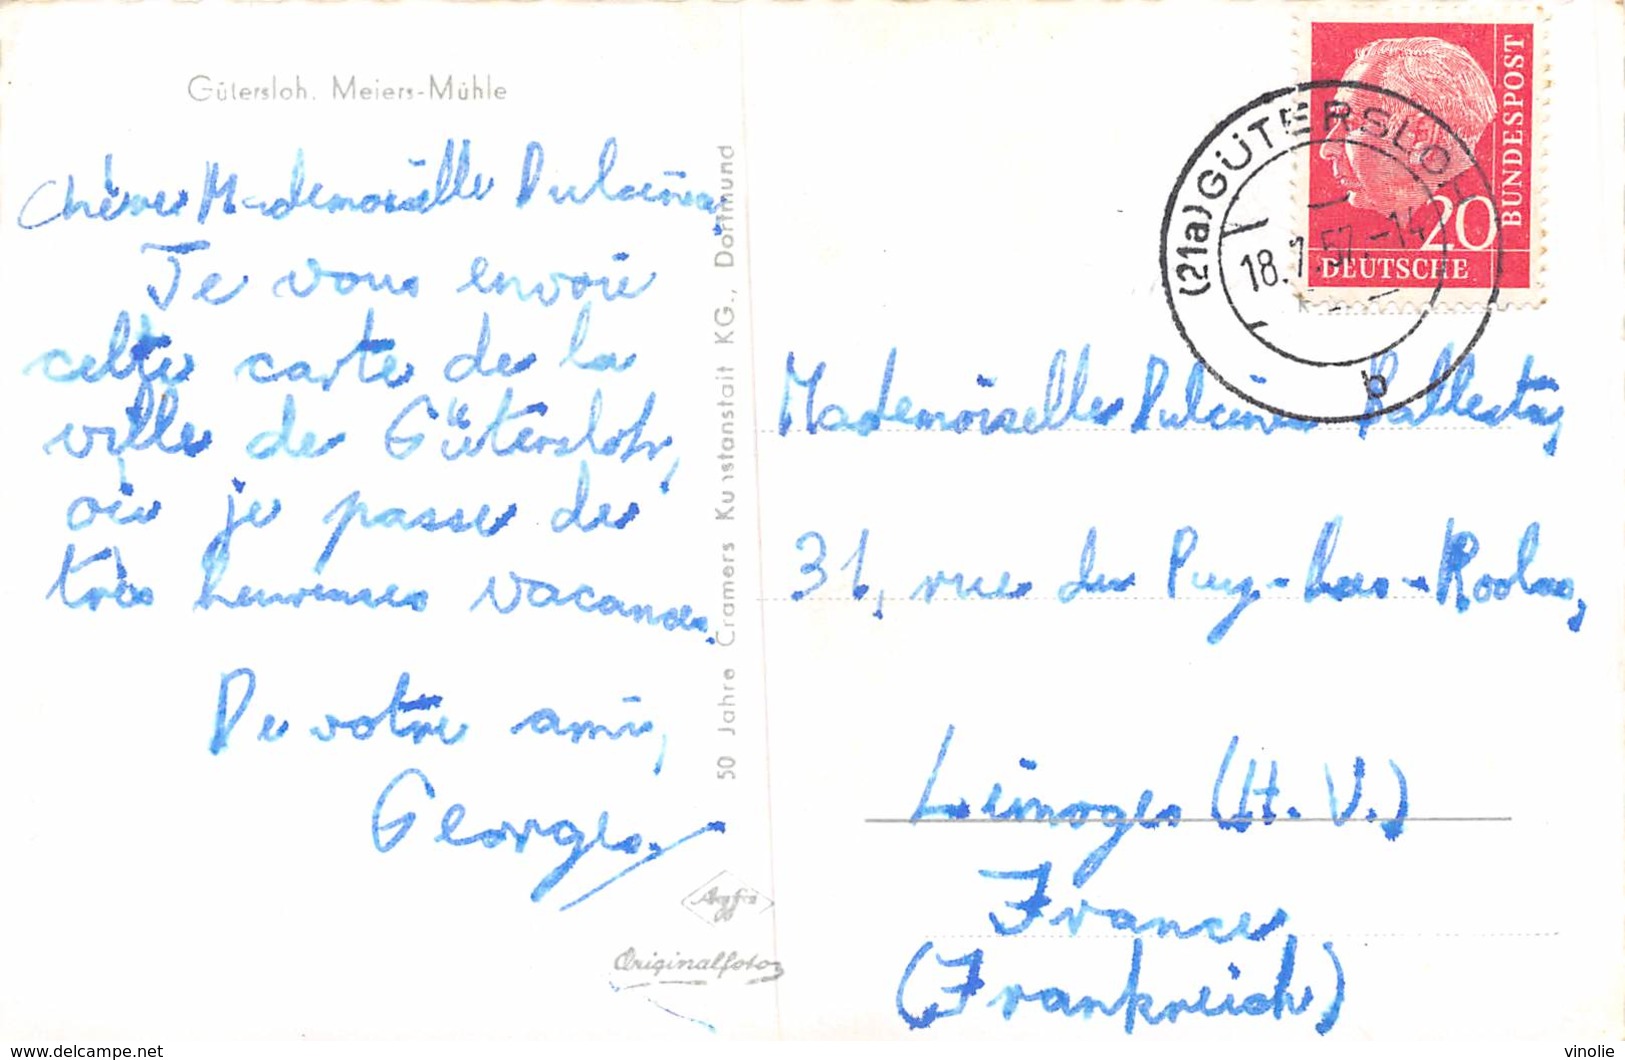 Gütersloh. Meiers-Mühle
Chère Mademoiselle Dulcinea,
Je vous envoie
cette carte de la
ville de Gütersloh,
où je passe de
très heureuses vacances.
De votre ami,
Georges.
50 Jahre Cramers Kunstanstalt KG., Dortmund
Agfa
Originalfoto
DEUTSCHE
BUNDESPOST
20
(21a) GÜTERSLOH
18.7.57.-14
b
Mademoiselle Dulcinea Ballesta,
31, rue du Puy-Las-Rodas,
Limoges (H.V.)
France
(Frankreich)
delcampe.net
vinolie